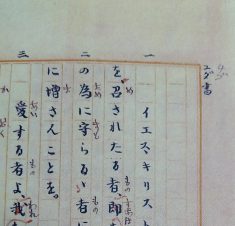 ユダ書
一 イエス・キリスト
を、召されたる者、即
二 の為に守らるゝ者に
に増さんことを。
三 愛する者よ、我